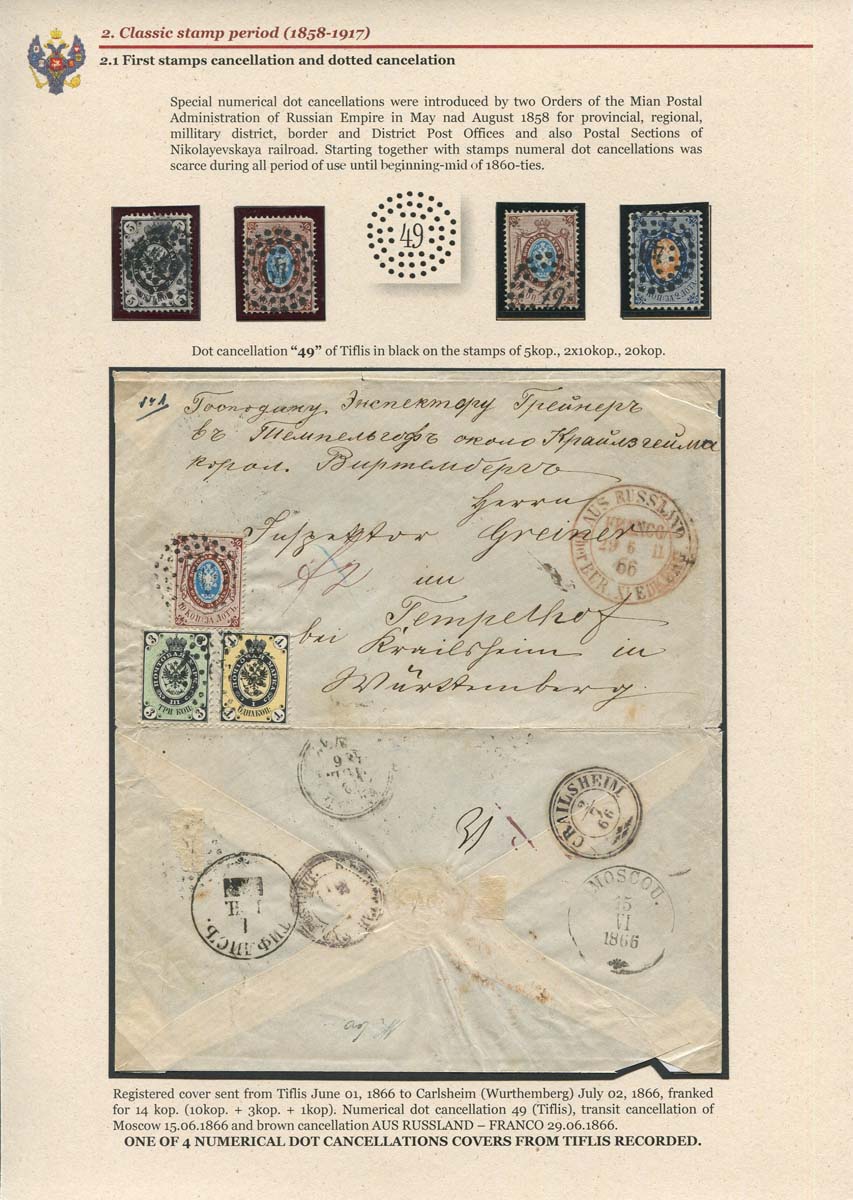 2. Classic stamp period (1858-1917)
2.1 First stamps cancellation and dotted cancelation
Special numerical dot cancellations were introduced by two Orders of the Mian Postal
Administration of Russian Empire in May nad August 1858 for provincial, regional,
millitary district, border and District Post Offices and also Postal Sections of
Nikolayevskaya railroad. Starting together with stamps numeral dot cancellations was
scarce during all period of use until beginning-mid of 1860-ties.
5
5
49
Dot cancellation “49” of Tiflis in black on the stamps of 5kop., 2x10kop., 20kop.
Господину Инспектору Грейнеръ
въ Темпельгофъ около Крайлзгейма
корол. Виртембергъ
Herrn
Inspektor Greiner
im
Tempelhof
bei Krailsheim in
Württemberg.
AUS RUSSLAND
FRANCO
29 6 II
66
10 КОП. ЗА ЛОТЪ
3 3
ПОЧТОВАЯ МАРКА
III
ТРИ КОП.
3 3
1 1
ПОЧТОВАЯ МАРКА
I
ОДНА КОП.
1 1
CRAILSHEIM
66
ТИФЛИСЪ.
1
MOSCOU.
15
VI
1866
Registered cover sent from Tiflis June 01, 1866 to Carlsheim (Wurthemberg) July 02, 1866, franked
for 14 kop. (10kop. + 3kop. + 1kop). Numerical dot cancellation 49 (Tiflis), transit cancellation of
Moscow 15.06.1866 and brown cancellation AUS RUSSLAND – FRANCO 29.06.1866.
ONE OF 4 NUMERICAL DOT CANCELLATIONS COVERS FROM TIFLIS RECORDED.